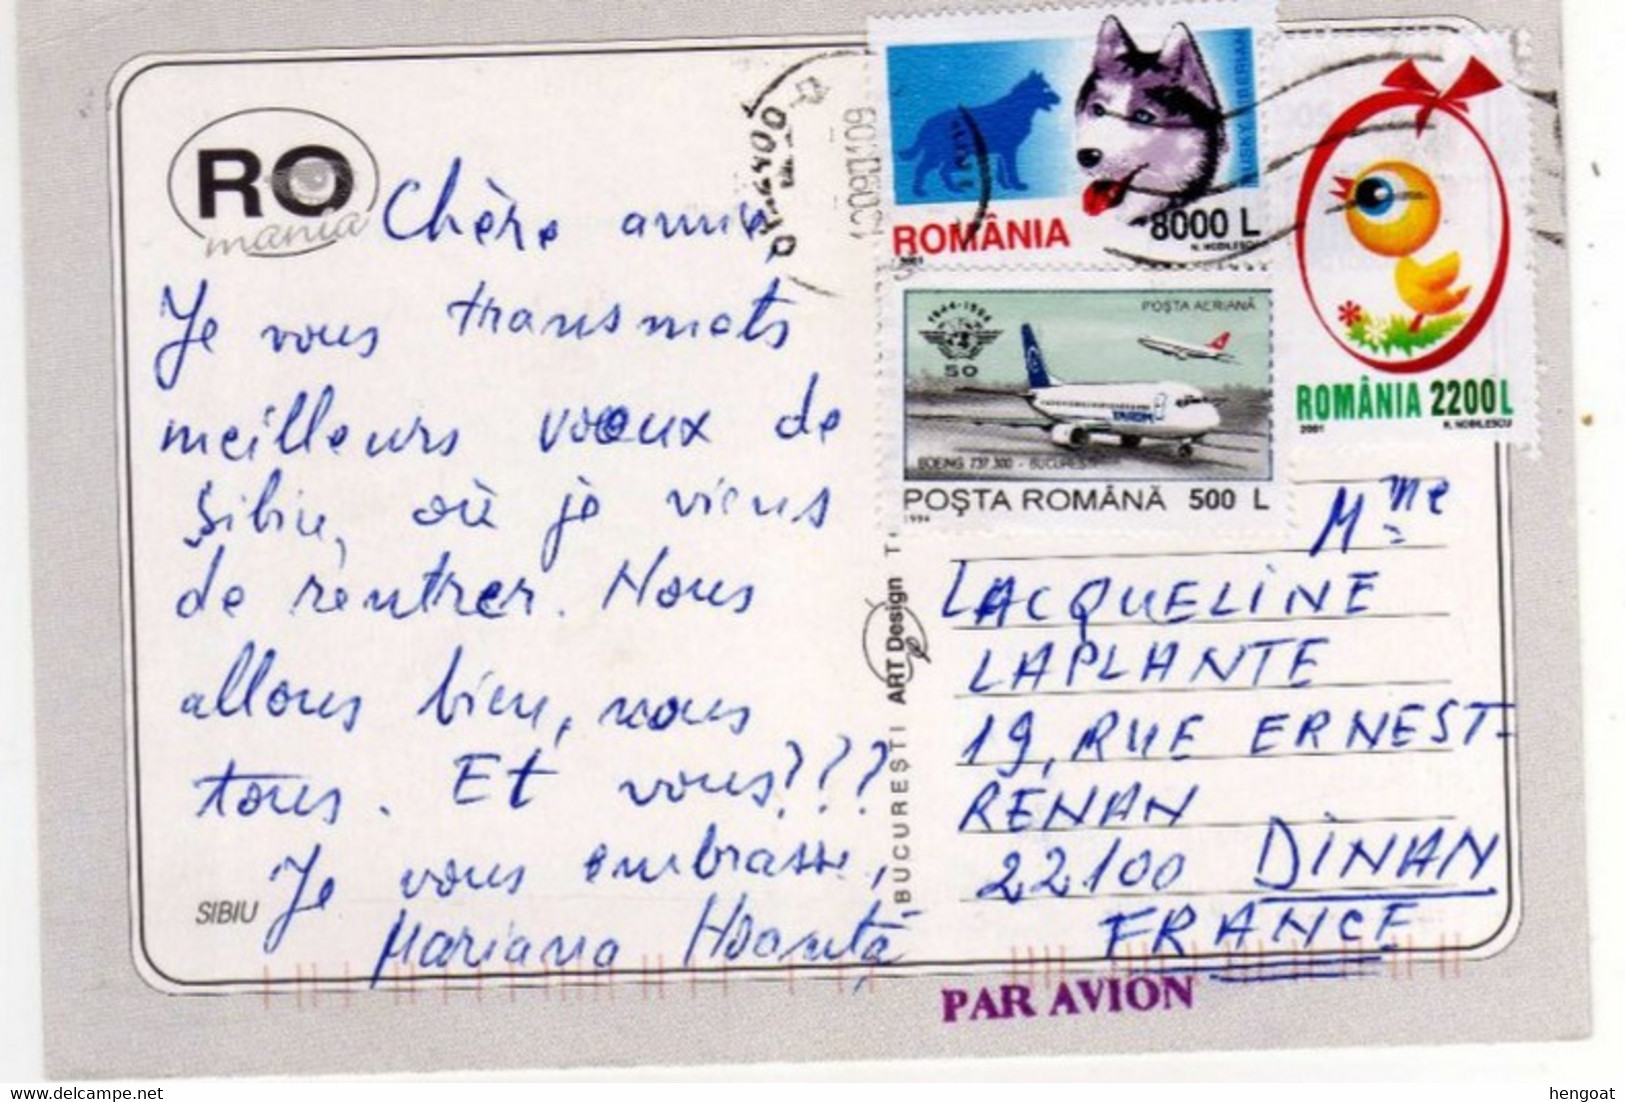 RO
mania
Chère amie,
Je vous transmets
meilleurs voeux de
Sibiu, où je viens
de rentrer. Nous
allons bien, nous
tous. Et vous???
Je vous embrasse,
Mariana
SIBIU
BUCUREȘTI ART Design
120901 09
HUSKY SIBERIAN
8000 L
ROMÂNIA
2001
N. NOBILESCU
ROMÂNIA 2200L
2001
N. NOBILESCU
1944-1994
50
POȘTA AERIANĂ
TAROM
BOEING 737.300 - BUCUREȘTI
POȘTA ROMÂNĂ 500 L
1994
Mme
LACQUELINE
LAPLANTE
19, RUE ERNEST-
RENAN
22100 DINAN
FRANCE
PAR AVION
hengoat